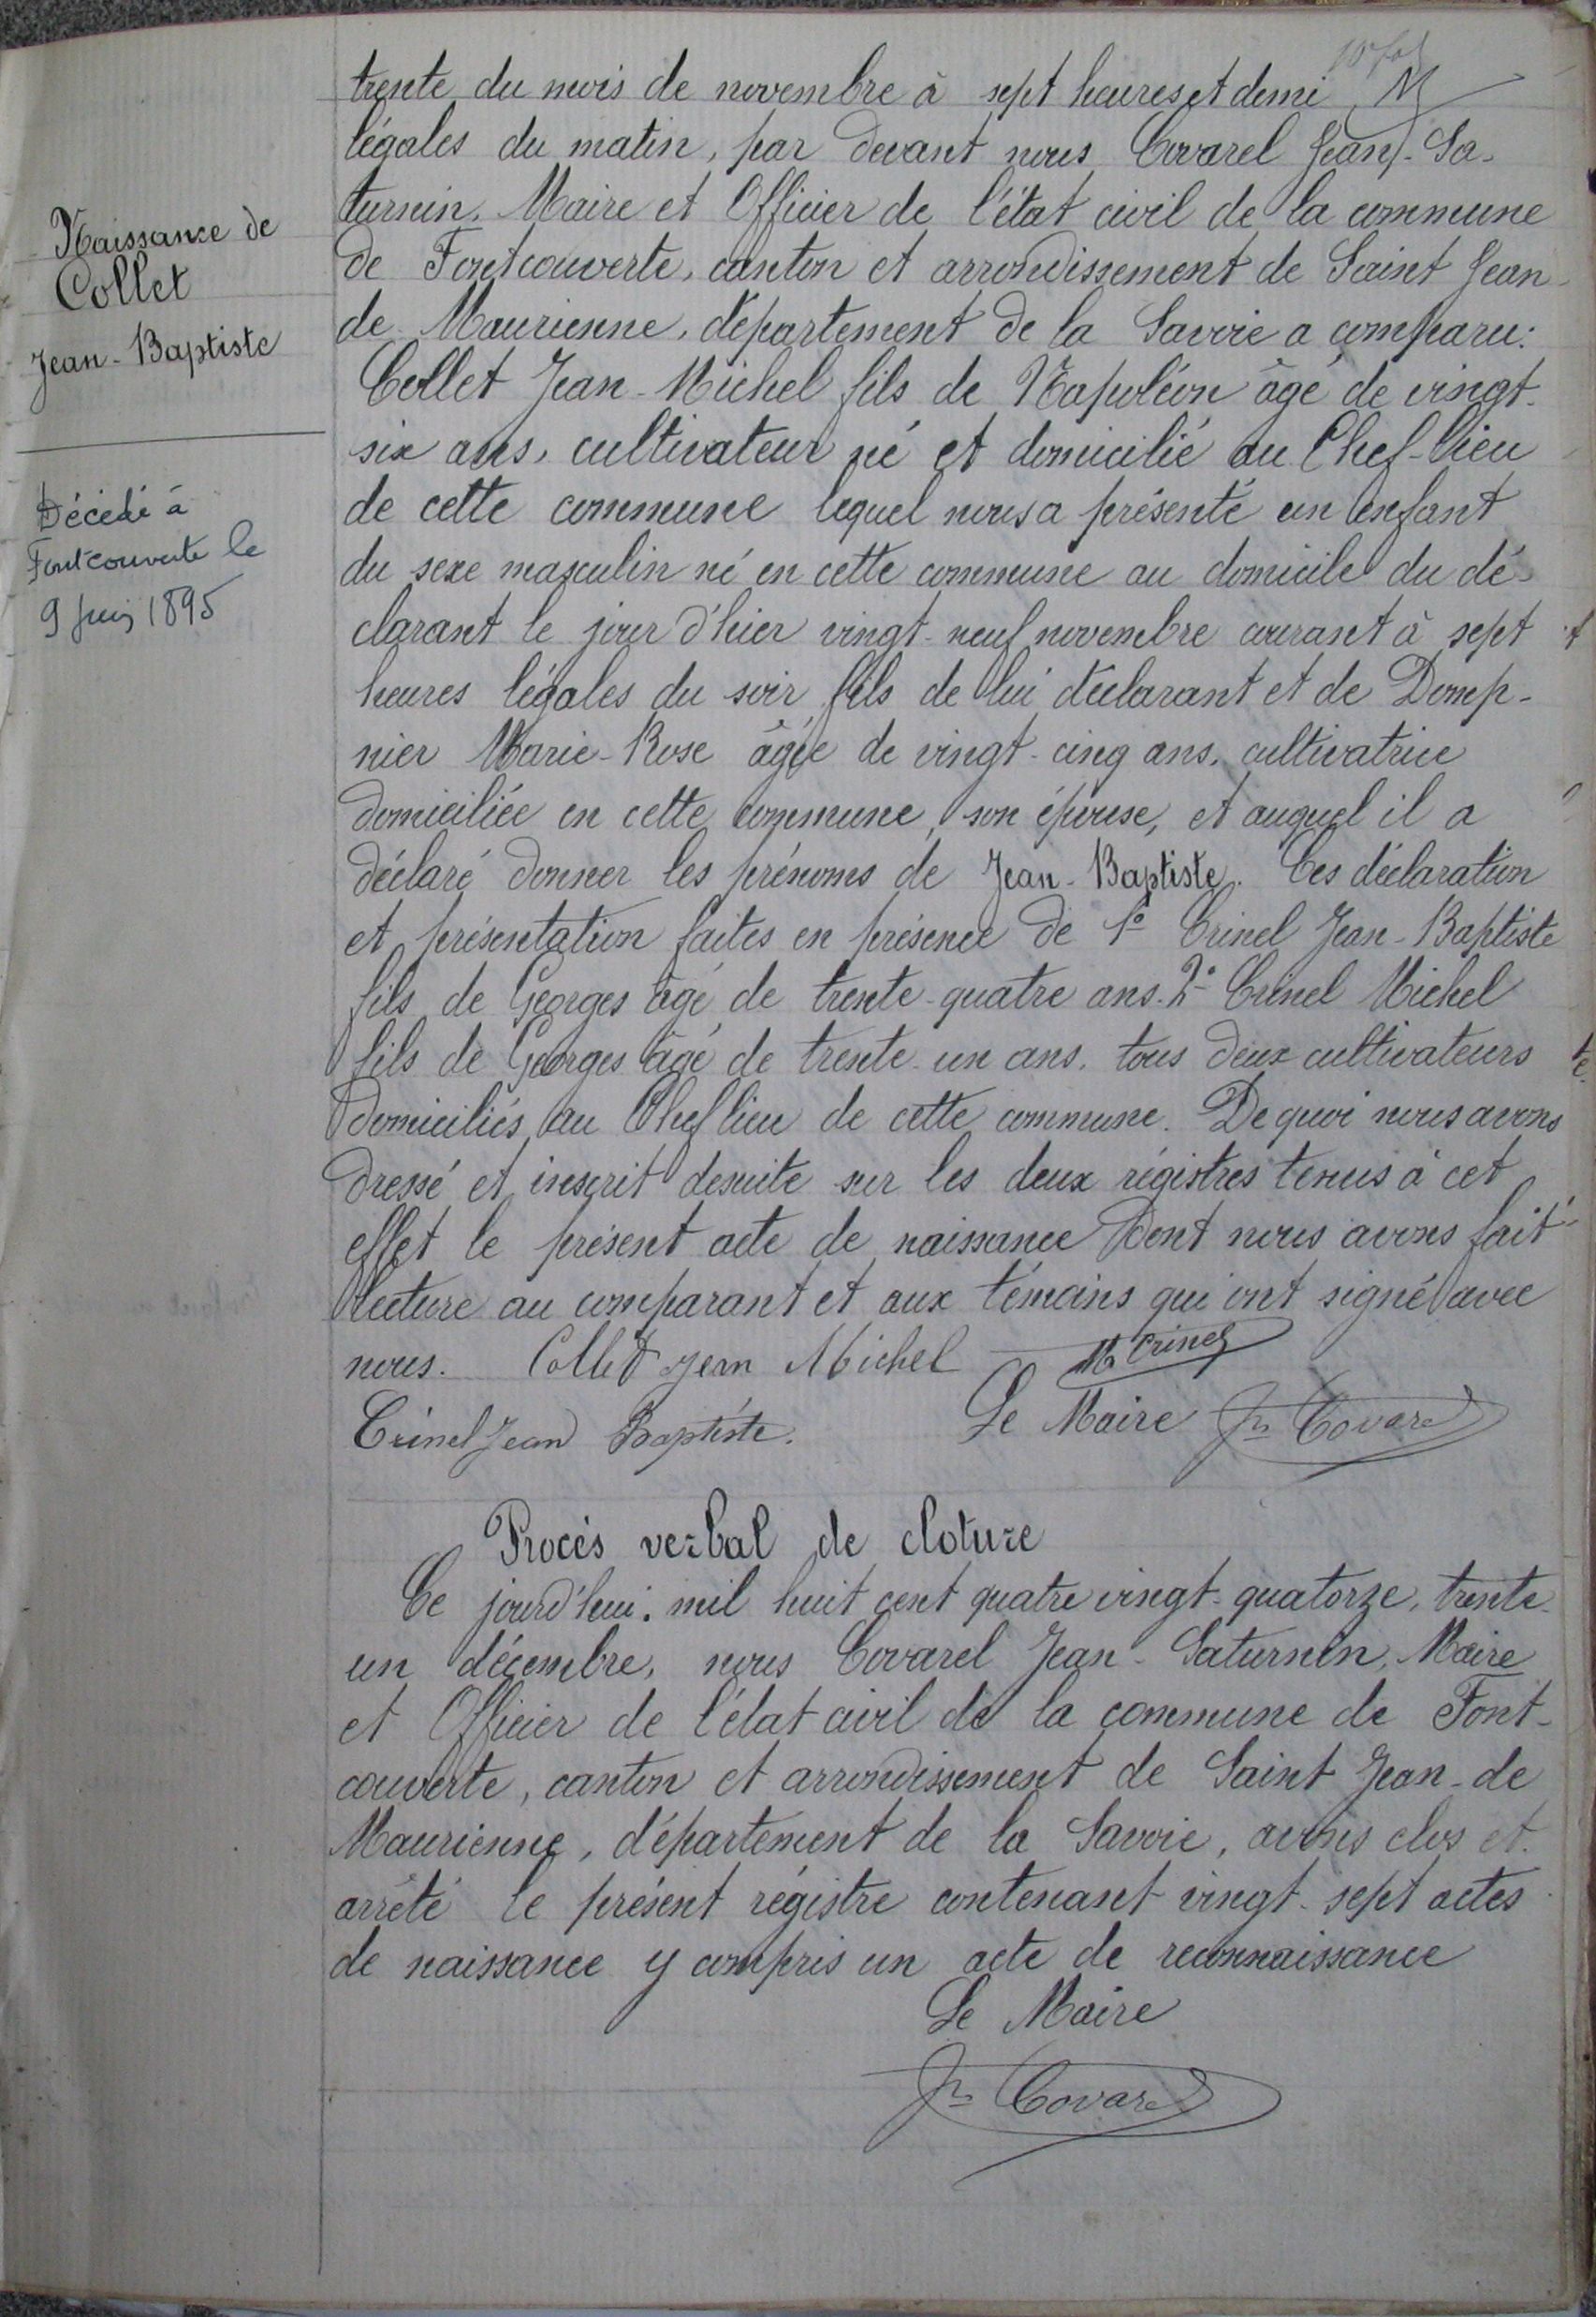 trente du mois de novembre à sept heures et demi
légales du matin, par devant nous Covarel Jean-Sa-
turnin, Maire et Officier de l'état civil de la commune
de Fontcouverte, canton et arrondissement de Saint Jean-
de Maurienne, département de la Savoie a comparu:
Collet Jean-Michel fils de Napoléon âgé de vingt-
six ans, cultivateur né et domicilié au Chef-lieu
de cette commune lequel nous a présenté un enfant
du sexe masculin né en cette commune au domicile du dé-
clarant le jour d'hier vingt-neuf novembre courant à sept
heures légales du soir fils de lui déclarant et de Domp-
nier Marie-Rose âgée de vingt-cinq ans, cultivatrice
domiciliée en cette commune, son épouse, et auquel il a
déclaré donner les prénoms de Jean-Baptiste. Ces déclaration
et présentation faites en présence de 1° Crinel Jean-Baptiste
fils de Georges âgé de trente-quatre ans. 2° Crinel Michel
fils de Georges âgé de trente-un ans, tous deux cultivateurs
domiciliés au Chef lieu de cette commune. De quoi nous avons
dressé et inscrit desuite sur les deux régistres tenus à cet
effet le présent acte de naissance dont nous avons fait
lecture au comparant et aux témoins qui ont signé avec
nous. Collet Jean Michel M Crinel
Crinel Jean Baptiste. Le Maire Jn Covarel
Naissance de
Collet
Jean-Baptiste
Décédé à
Fontcouverte le
9 juin 1895
Procès verbal de cloture
Ce jourd'hui, mil huit cent quatre vingt-quatorze, trente-
un décembre, nous Covarel Jean-Saturnin, Maire
et Officier de l'état civil de la commune de Font-
couverte, canton et arrondissement de Saint Jean-de
Maurienne, département de la Savoie, avons clos et
arrêté le présent régistre contenant vingt-sept actes
de naissance y compris un acte de reconnaissance
Le Maire
Jn Covarel